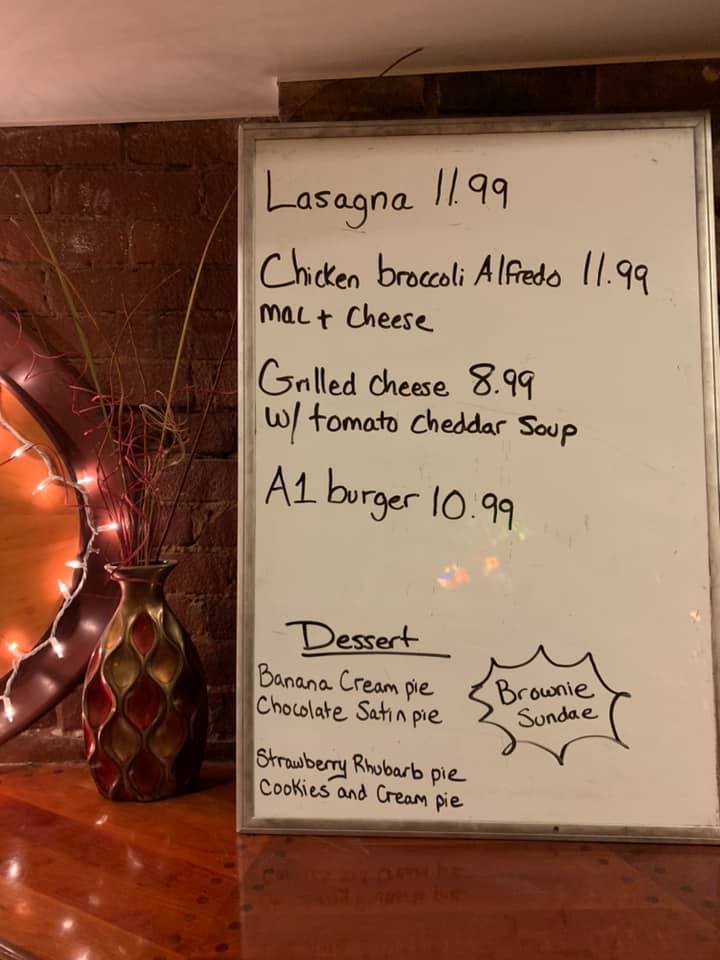 Lasagna 11.99
Chicken broccoli Alfredo 11.99
mac + Cheese
Grilled cheese 8.99
w/ tomato cheddar Soup
A1 burger 10.99
Dessert
Banana Cream pie
Chocolate Satin pie
Brownie
Sundae
Strawberry Rhubarb pie
Cookies and Cream pie